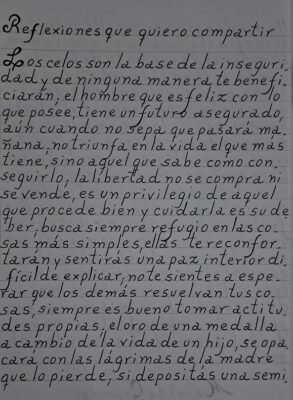 Reflexiones que quiero compartir
Los celos son la base de la inseguri-
dad y de ninguna manera te benefi-
ciarán, el hombre que es feliz con lo
que posee, tiene un futuro asegurado,
aún cuando no sepa que pasará ma-
ñana, no triunfa en la vida el que más
tiene, sino aquel que sabe como con-
seguirlo, la libertad no se compra ni
se vende, es un privilegio de aquel
que procede bien y cuidarla es su de-
ber, busca siempre refugio en las co-
sas más simples, ellas te reconfor-
tarán y sentirás una paz interior di-
fícil de explicar, no te sientes a espe-
rar que los demás resuelvan tus co-
sas, siempre es bueno tomar actitu-
des propias, el oro de una medalla
a cambio de la vida de un hijo, se opa-
cará con las lágrimas de la madre
que lo pierde, si depositás una semi-